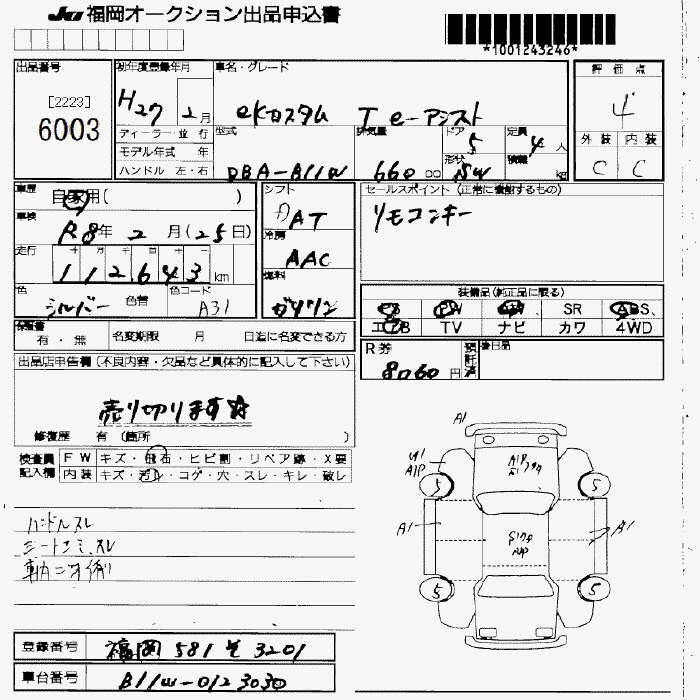 JU 福岡オークション出品申込書
*1001243246*
出品番号
[2223]
6003
初年度登録年月
H27 2月
ディーラー・並行
モデル年式 年
ハンドル 左・右
車名・グレード
eKカスタム T e-アシスト
型式
DBA-B11W
排気量
660 cc
ドア
5
形状
SW
定員
4人
積載
kg
評価点
4
外装 内装
C C
車歴
自家用( )
車検
R8年2月(25日)
走行
十 万 千 百 十
112,643 km
色
シルバー 色替
色コード
A31
シフト
AT
冷房
AAC
燃料
ガソリン
セールスポイント (正常に機能するもの)
リモコンキー
装備品(純正品に限る)
PS PW AW SR ABS
エアB TV ナビ カワ 4WD
保証書
有・無
名変期限 月 日迄に名変できる方
R券
8060円
預託済
後日品
出品店申告欄(不良内容・欠品など具体的に記入して下さい)
売り切ります☆
修復歴 有 (箇所 )
検査員記入欄
FW キズ・飛石・ヒビ割・リペア跡・X要
内装 キズ・汚れ・コゲ・穴・スレ・キレ・破レ
ハンドルスレ
シートシミ、スレ
A1
A1P
A1
A1
5 5
5 5
登録番号 福岡 581 そ 3201
車台番号 B11W-0123030